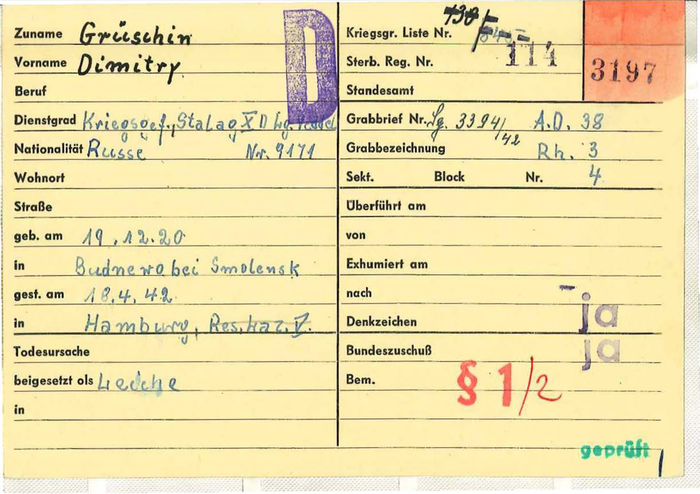 Zuname Grüschin
Vorname Dimitry
Beruf
Dienstgrad Kriegsgef., Stalag X D
Nationalität Russe Nr. 9171
Wohnort
Straße
geb. am 19.12.20
in Budnewo bei Smolensk
gest. am 18.4.42
in Hamburg, Res. Laz. V.
Todesursache
beigesetzt als Leiche
in
D
Kriegsgr. Liste Nr.
Sterb. Reg. Nr. 114
3197
Standesamt
Grabbrief Nr. 3394/42 A.D. 38
Grabbezeichnung Rh. 3
Sekt. Block Nr. 4
Überführt am
von
Exhumiert am
nach
Denkzeichen ja
Bundeszuschuß ja
Bem. § 1/2
geprüft